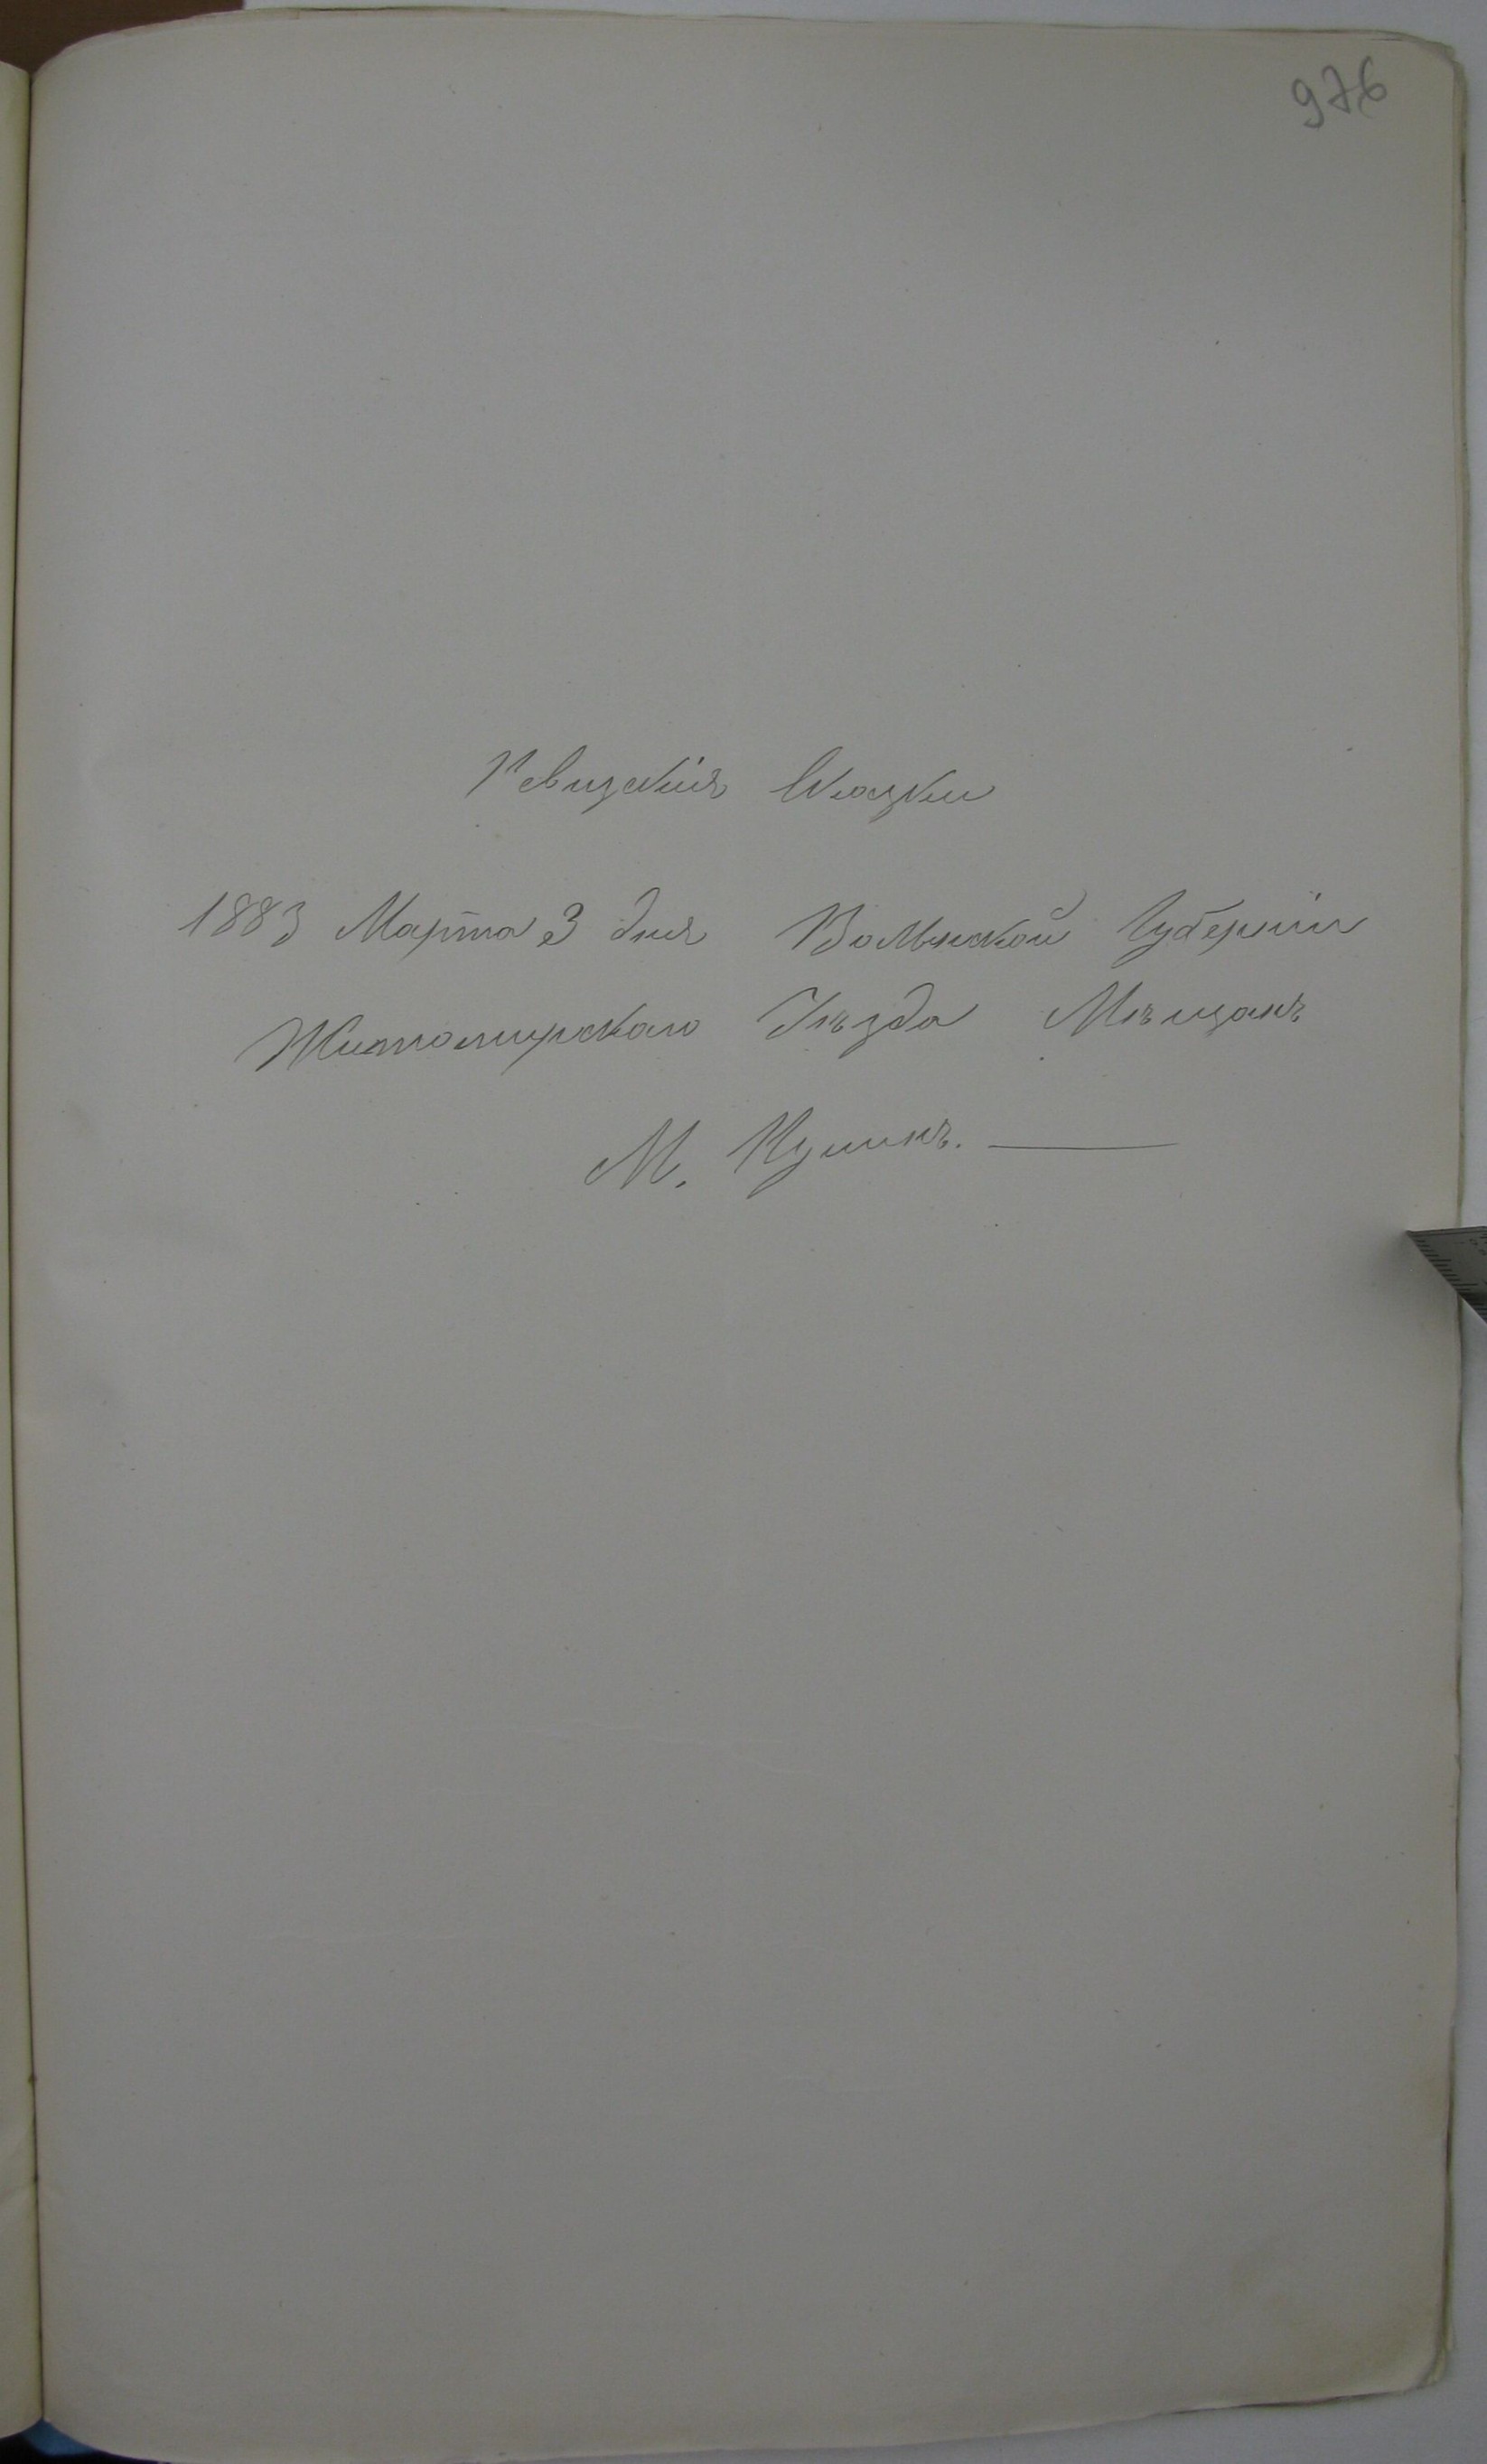 976
Ревизскія Сказки
1883 Марта 3 дня Волынской Губерніи
Житомирскаго Уѣзда Мѣщанъ
М.